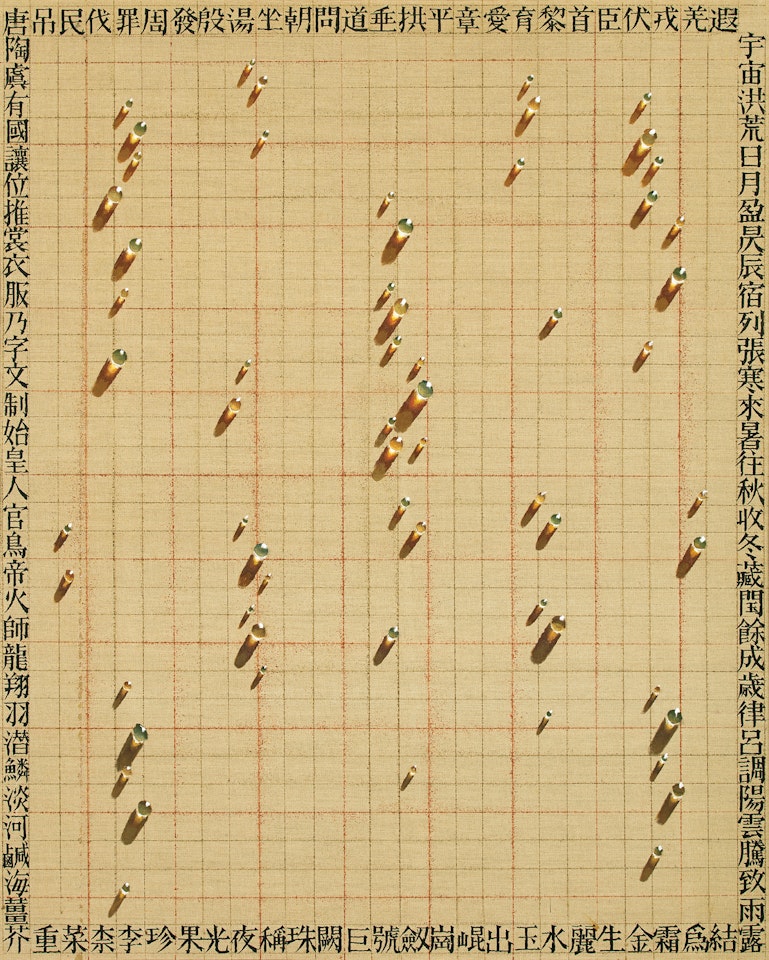 宇宙洪荒日月盈昃辰宿列張寒來暑往秋收冬藏閏餘成歲律呂調陽雲騰致雨露
結爲霜金生麗水玉出崐崗劔號巨闕珠稱夜光果珍李柰菜重芥
薑海鹹河淡鱗潜羽翔龍師火帝鳥官人皇始制文字乃服衣裳推位讓國有虞陶唐
吊民伐罪周發殷湯坐朝問道垂拱平章愛育黎首臣伏戎羌遐